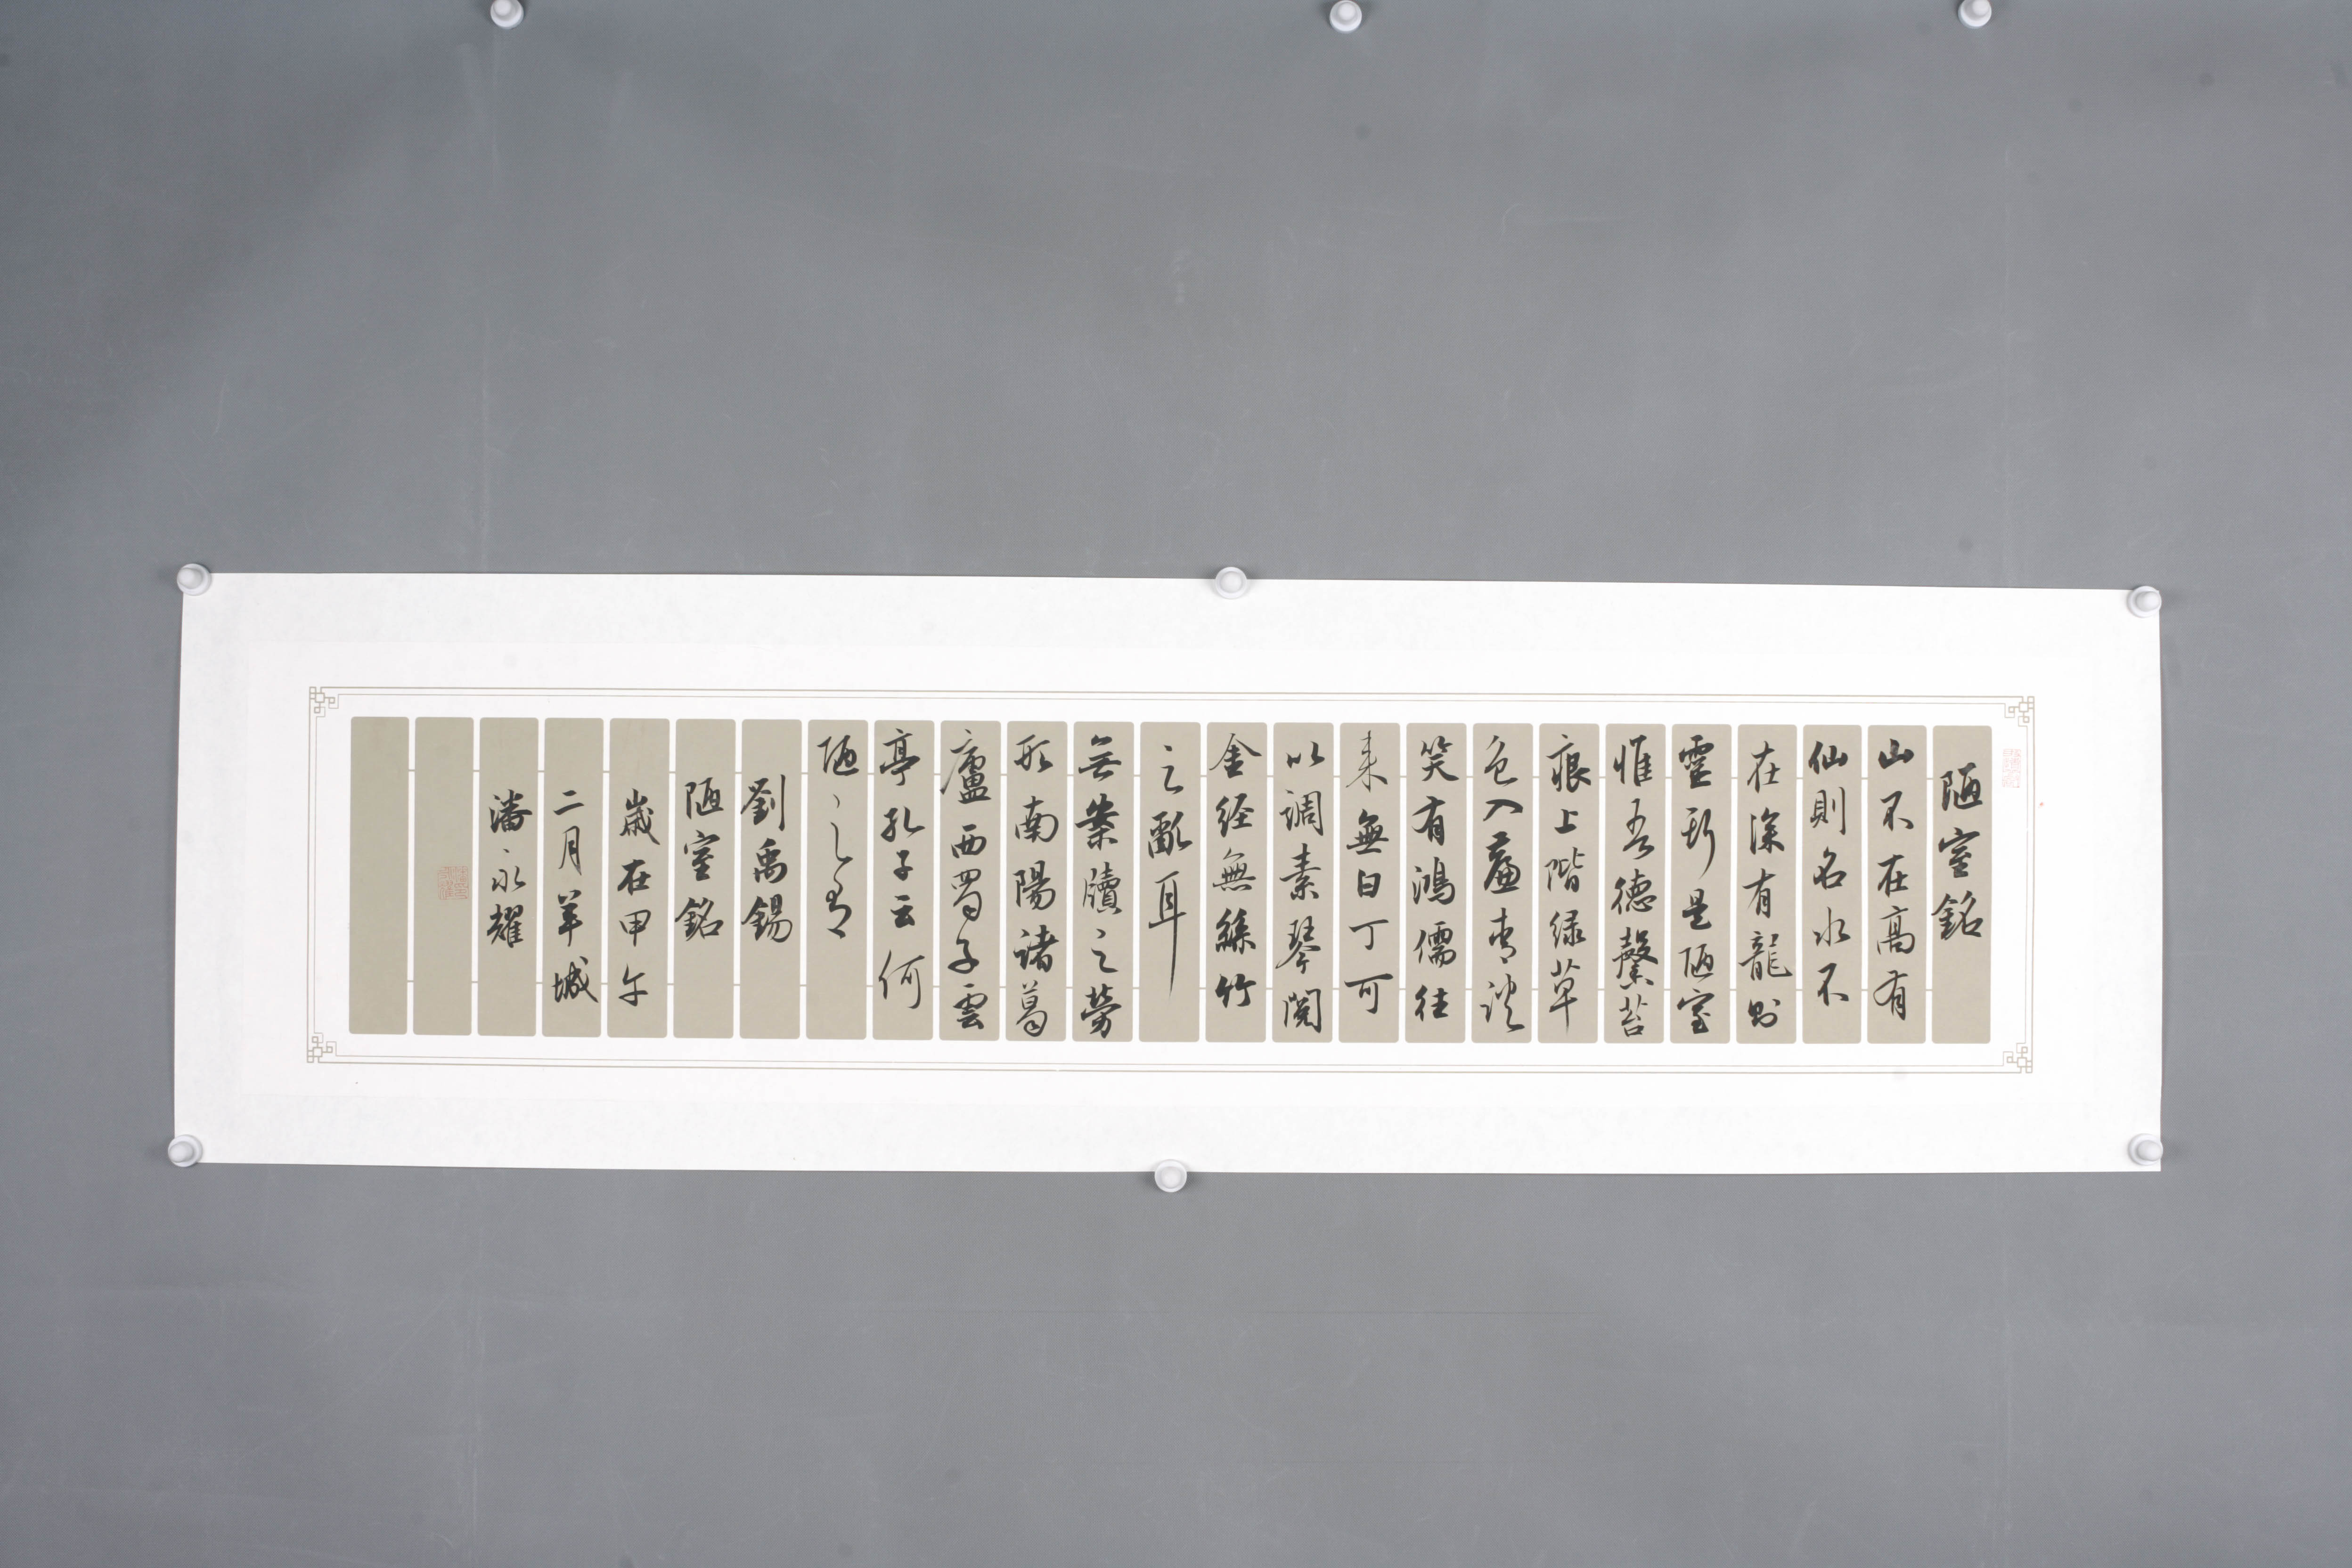 陋室銘
山不在高有
仙則名水不
在深有龍則
靈斯是陋室
惟吾德馨苔
痕上階緑草
色入簾青談
笑有鴻儒往
来無白丁可
以調素琴閱
金経無絲竹
之亂耳
無案牘之勞
形南陽諸葛
廬西蜀子雲
亭孔子云何
陋之有
劉禹錫
陋室銘
歲在甲午
二月羊城
潘永耀